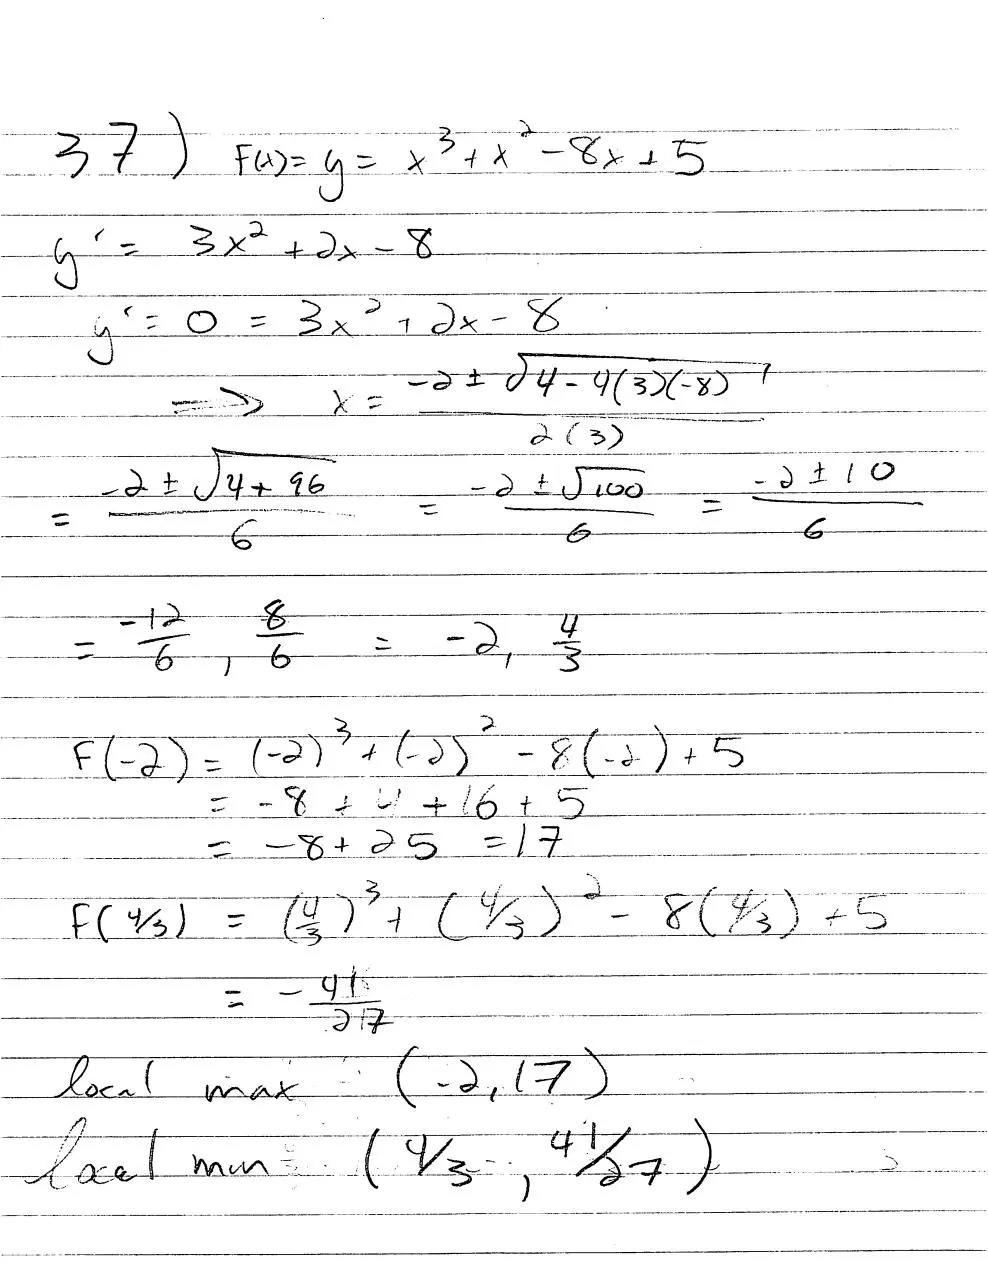 37) F(x)= y = x³ + x² - 8x + 5
y' = 3x² + 2x - 8
y' = 0 = 3x² + 2x - 8
⟹ x = (-2 ± √(4 - 4(3)(-8))) / 2(3)
= (-2 ± √(4 + 96)) / 6 = (-2 ± √100) / 6 = (-2 ± 10) / 6
= -12/6 , 8/6 = -2, 4/3
F(-2) = (-2)³ + (-2)² - 8(-2) + 5
= -8 + 4 + 16 + 5
= -8 + 25 = 17
F(4/3) = (4/3)³ + (4/3)² - 8(4/3) + 5
= - 41/217
local max (-2, 17)
local min (4/3, 41/27)